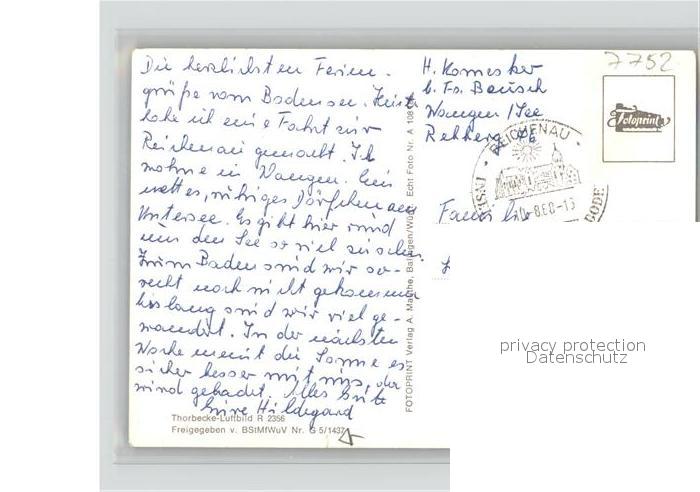 Die herzlichsten Ferien-
grüße vom Bodensee. Heute
habe ich eine Fahrt zur
Reichenau gemacht. Ich
wohne in Wangen. Ein
nettes, ruhiges Dörfchen am
Untersee. Es gibt hier rund
um den See so viel zu sehen.
Zum Baden sind wir so-
recht noch nicht gekommen
bislang sind wir viel ge-
wandert. In der nächsten
Woche meint die Sonne es
sicher besser mit uns, da
wird gebadet. Alles Gute
Eure Hildegard
Thorbecke-Luftbild R 2356
Freigegeben v. BStMfWuV Nr. G 5/1437
FOTOPRINT Verlag A. Mauthe, Balingen/Württ. Echt Foto Nr. A 108
7752
H.
b. Fa.
Wangen / See
Fotoprint
REICHENAU
INSEL
BODE
Familie
privacy protection
Datenschutz